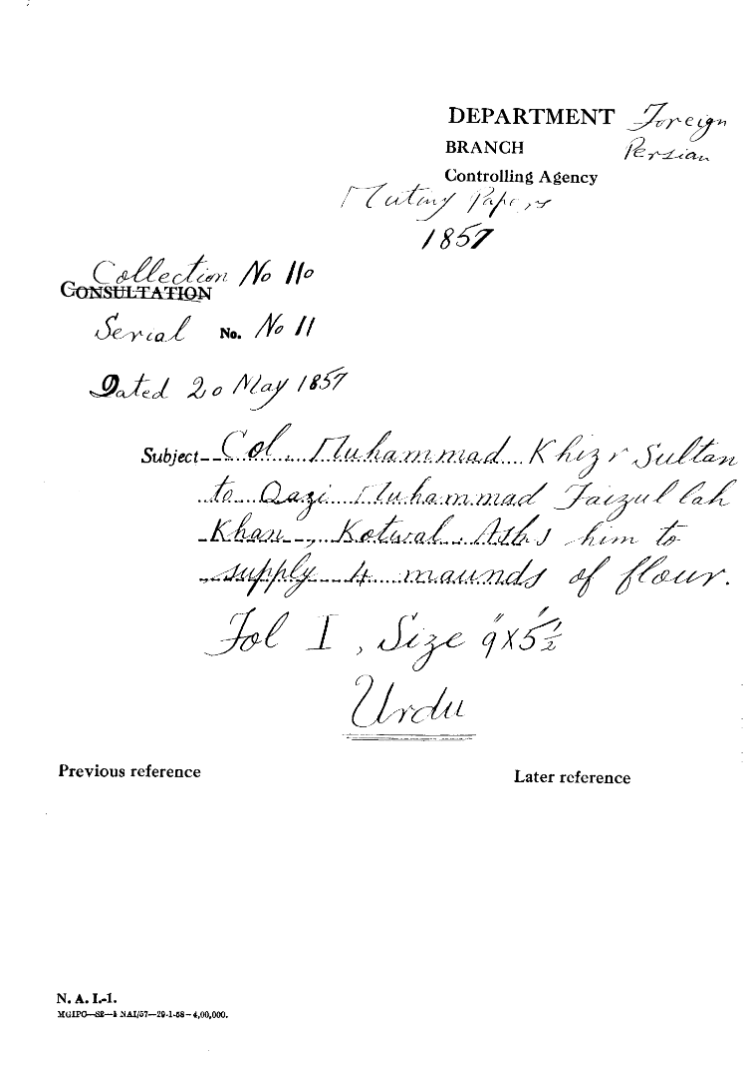 DEPARTMENT Foreign
BRANCH Persian
Controlling Agency
Mutiny Papers
1857
Collection No 110
CONSULTATION
Serial No. No 11
Dated 20 May 1857
Subject Col. Muhammad Khizr Sultan
to Qazi Muhammad Faizullah
Khan, Kotwal. Asks him to
supply 4 maunds of flour.
Fol I, Size 9"x5½"
Urdu
Previous reference
Later reference
N. A. I.-1.
MGIPC—S2—1 NAI/57—29-1-58—4,00,000.